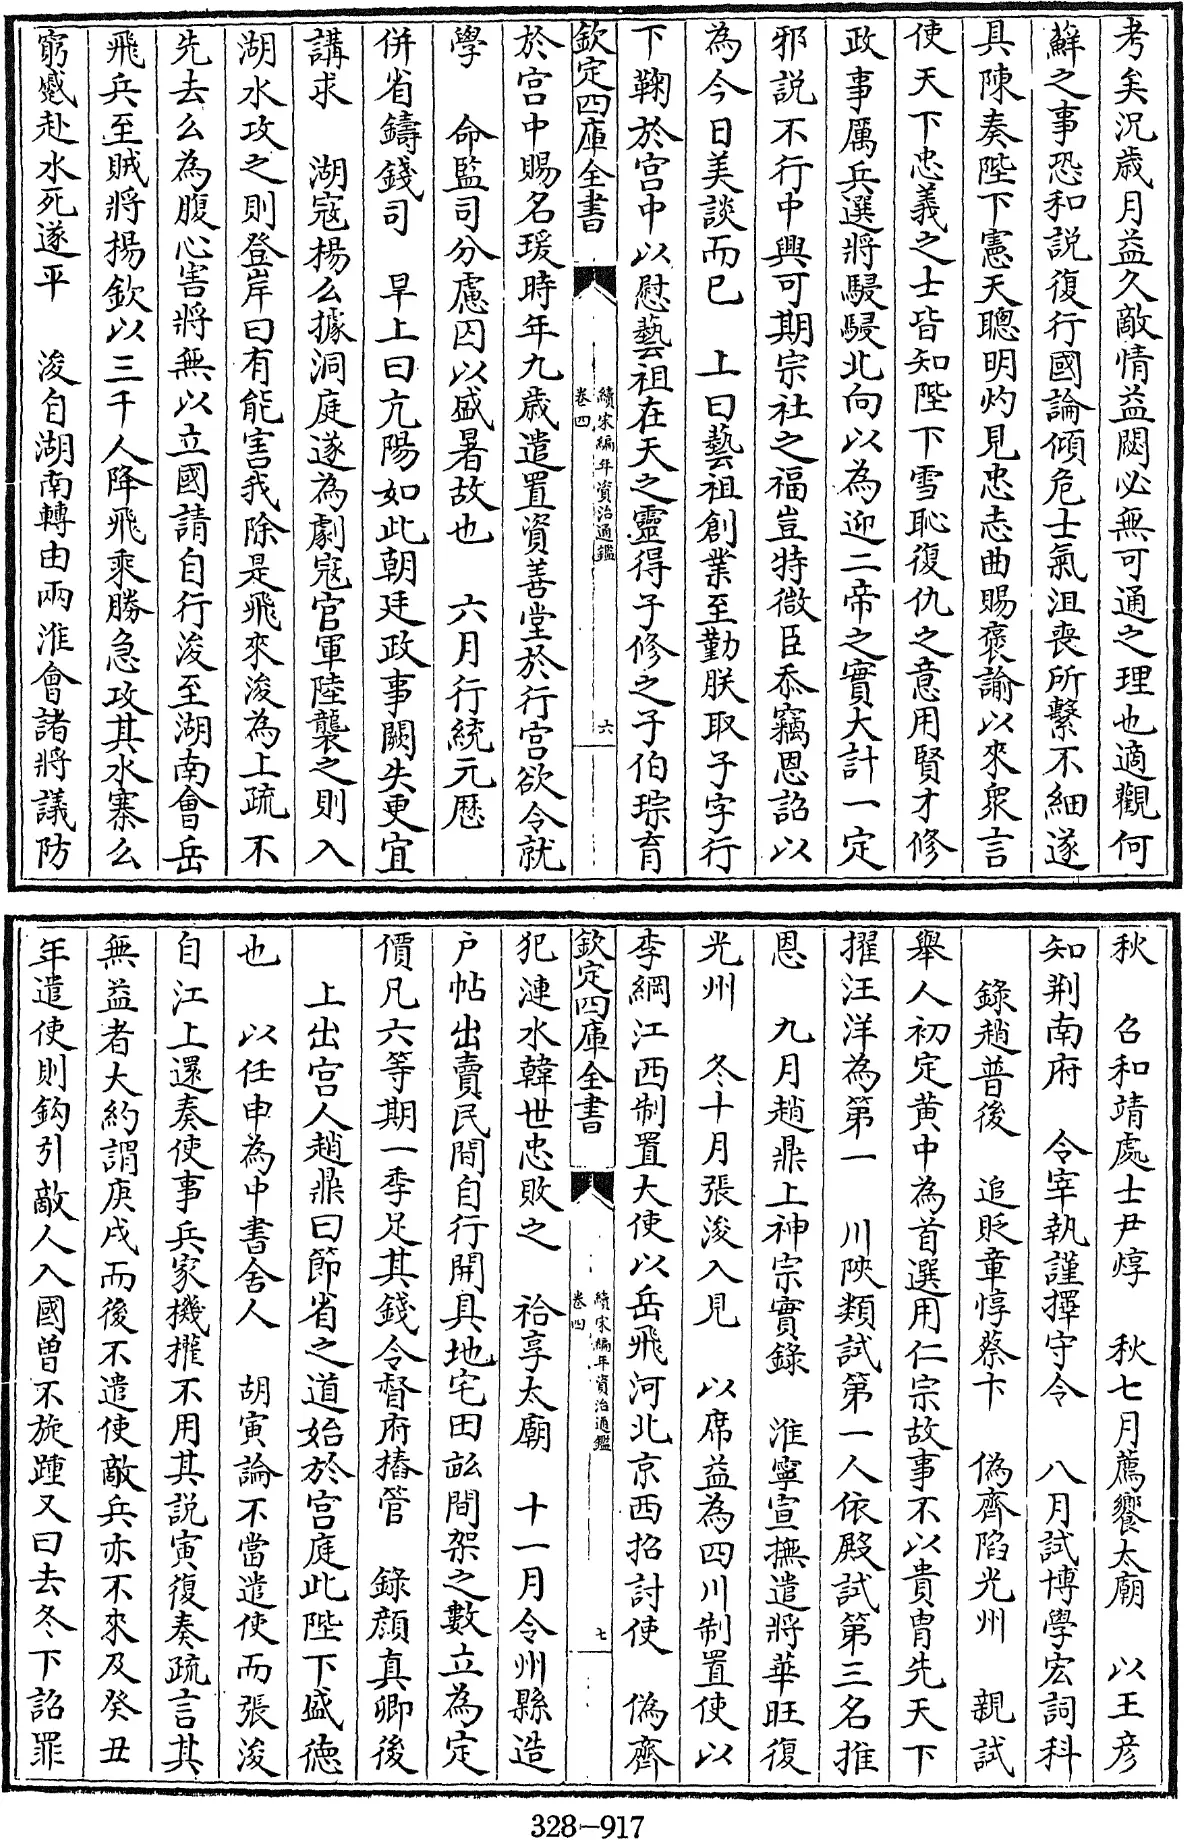 考矣況歳月益久敵情益閟必無可通之理也適觀何
蘚之事恐和説復行國論傾危士氣沮喪所繫不細遂
具陳奏陛下憲天聰明灼見忠志曲賜褒諭以來衆言
使天下忠義之士皆知陛下雪恥復仇之意用賢才修
政事厲兵選將駸駸北向以為迎二帝之實大計一定
邪説不行中興可期宗社之福豈特微臣忝竊恩詔以
為今日美談而已　上曰藝祖創業至勤朕取子字行
下鞠於宫中以慰藝祖在天之靈得子修之子伯琮育
欽定四庫全書
續宋編年資治通鑑
卷四
六
於宫中賜名瑗時年九歳遣置資善堂於行宫欲令就
學　命監司分慮囚以盛暑故也　六月行統元歴
併省鑄錢司　旱上曰亢陽如此朝廷政事闕失更宜
講求　湖寇楊么據洞庭遂為劇寇官軍陸襲之則入
湖水攻之則登岸曰有能害我除是飛來浚為上疏不
先去么為腹心害將無以立國請自行浚至湖南會岳
飛兵至賊將楊欽以三千人降飛乘勝急攻其水寨么
窮蹙赴水死遂平　浚自湖南轉由兩淮會諸將議防
秋　召和靖處士尹焞　秋七月薦饗太廟　以王彦
知荆南府　令宰執謹擇守令　八月試博學宏詞科
錄趙普後　追貶章惇蔡卞　偽齊陷光州　親試
舉人初定黄中為首選用仁宗故事不以貴胄先天下
擢汪洋為第一　川陜類試第一人依殿試第三名推
恩　九月趙鼎上神宗實錄　淮寧宣撫遣將華旺復
光州　冬十月張浚入見　以席益為四川制置使以
李綱江西制置大使以岳飛河北京西招討使　偽齊
欽定四庫全書
續宋編年資治通鑑
卷四
七
犯漣水韓世忠敗之　祫享太廟　十一月令州縣造
户帖出賣民間自行開具地宅田畝間架之數立為定
價凡六等期一季足其錢令督府樁管　錄顔真卿後
上出宫人趙鼎曰節省之道始於宫庭此陛下盛德
也　以任申為中書舍人　胡寅論不當遣使而張浚
自江上還奏使事兵家機權不用其説寅復奏疏言其
無益者大約謂庚戌而後不遣使敵兵亦不來及癸丑
年遣使則鈎引敵人入國曾不旋踵又曰去冬下詔罪
328-917